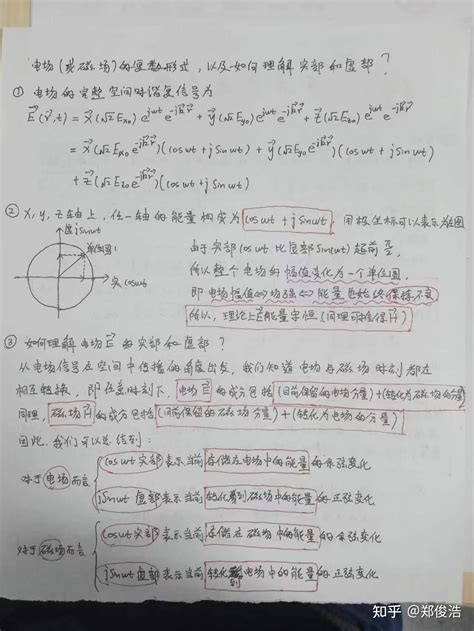 电场(或磁场)的复数形式，以及如何理解实部和虚部？
① 电场的完整空间时谐复信号为
E⃗(r⃗,t) = x⃗(√2Ex₀)e^{jωt}e^{-jk⃗r⃗} + y⃗(√2Ey₀)e^{jωt}e^{-jk⃗r⃗} + z⃗(√2Ez₀)e^{jωt}e^{-jk⃗r⃗}
= x⃗(√2Ex₀e^{-jk⃗r⃗})(cosωt+jsinωt) + y⃗(√2Ey₀e^{-jk⃗r⃗})(cosωt+jsinωt)
+ z⃗(√2Ez₀e^{-jk⃗r⃗})(cosωt+jsinωt)
② x,y,z轴上，任一轴的能量构实为cosωt+jsinωt，用极坐标可以表示为左图
虚jsinωt
单位圆1
实cosωt
由于实部cosωt比虚部sin(ωt)超前
所以整个电场的幅值变化为一个单位圆，
即电场幅值⇔场强⇔能量也始终保持不变
所以，理论上E⃗能量守恒(同理可推得H⃗)
③ 如何理解电场E⃗的实部和虚部？
从电场信号在空间中传播的角度出发，我们知道电场与磁场时刻都在
相互转换，即任意时刻下，电场E⃗的成分包括(目前保留的电场分量)+(转化为磁场的分量)
同理，磁场H⃗的成分包括(目前保留的磁场分量)+(转化为电场的分量)
因此，我们可以总结到：
对于电场而言
cosωt实部表示当前存储在电场中的能量的余弦变化
jsinωt虚部表示当前转化到磁场中的能量的正弦变化
对于磁场而言
cosωt实部表示当前存储在磁场中的能量的余弦变化
jsinωt虚部表示当前转化到电场中的能量的正弦变化
知乎 @郑俊浩